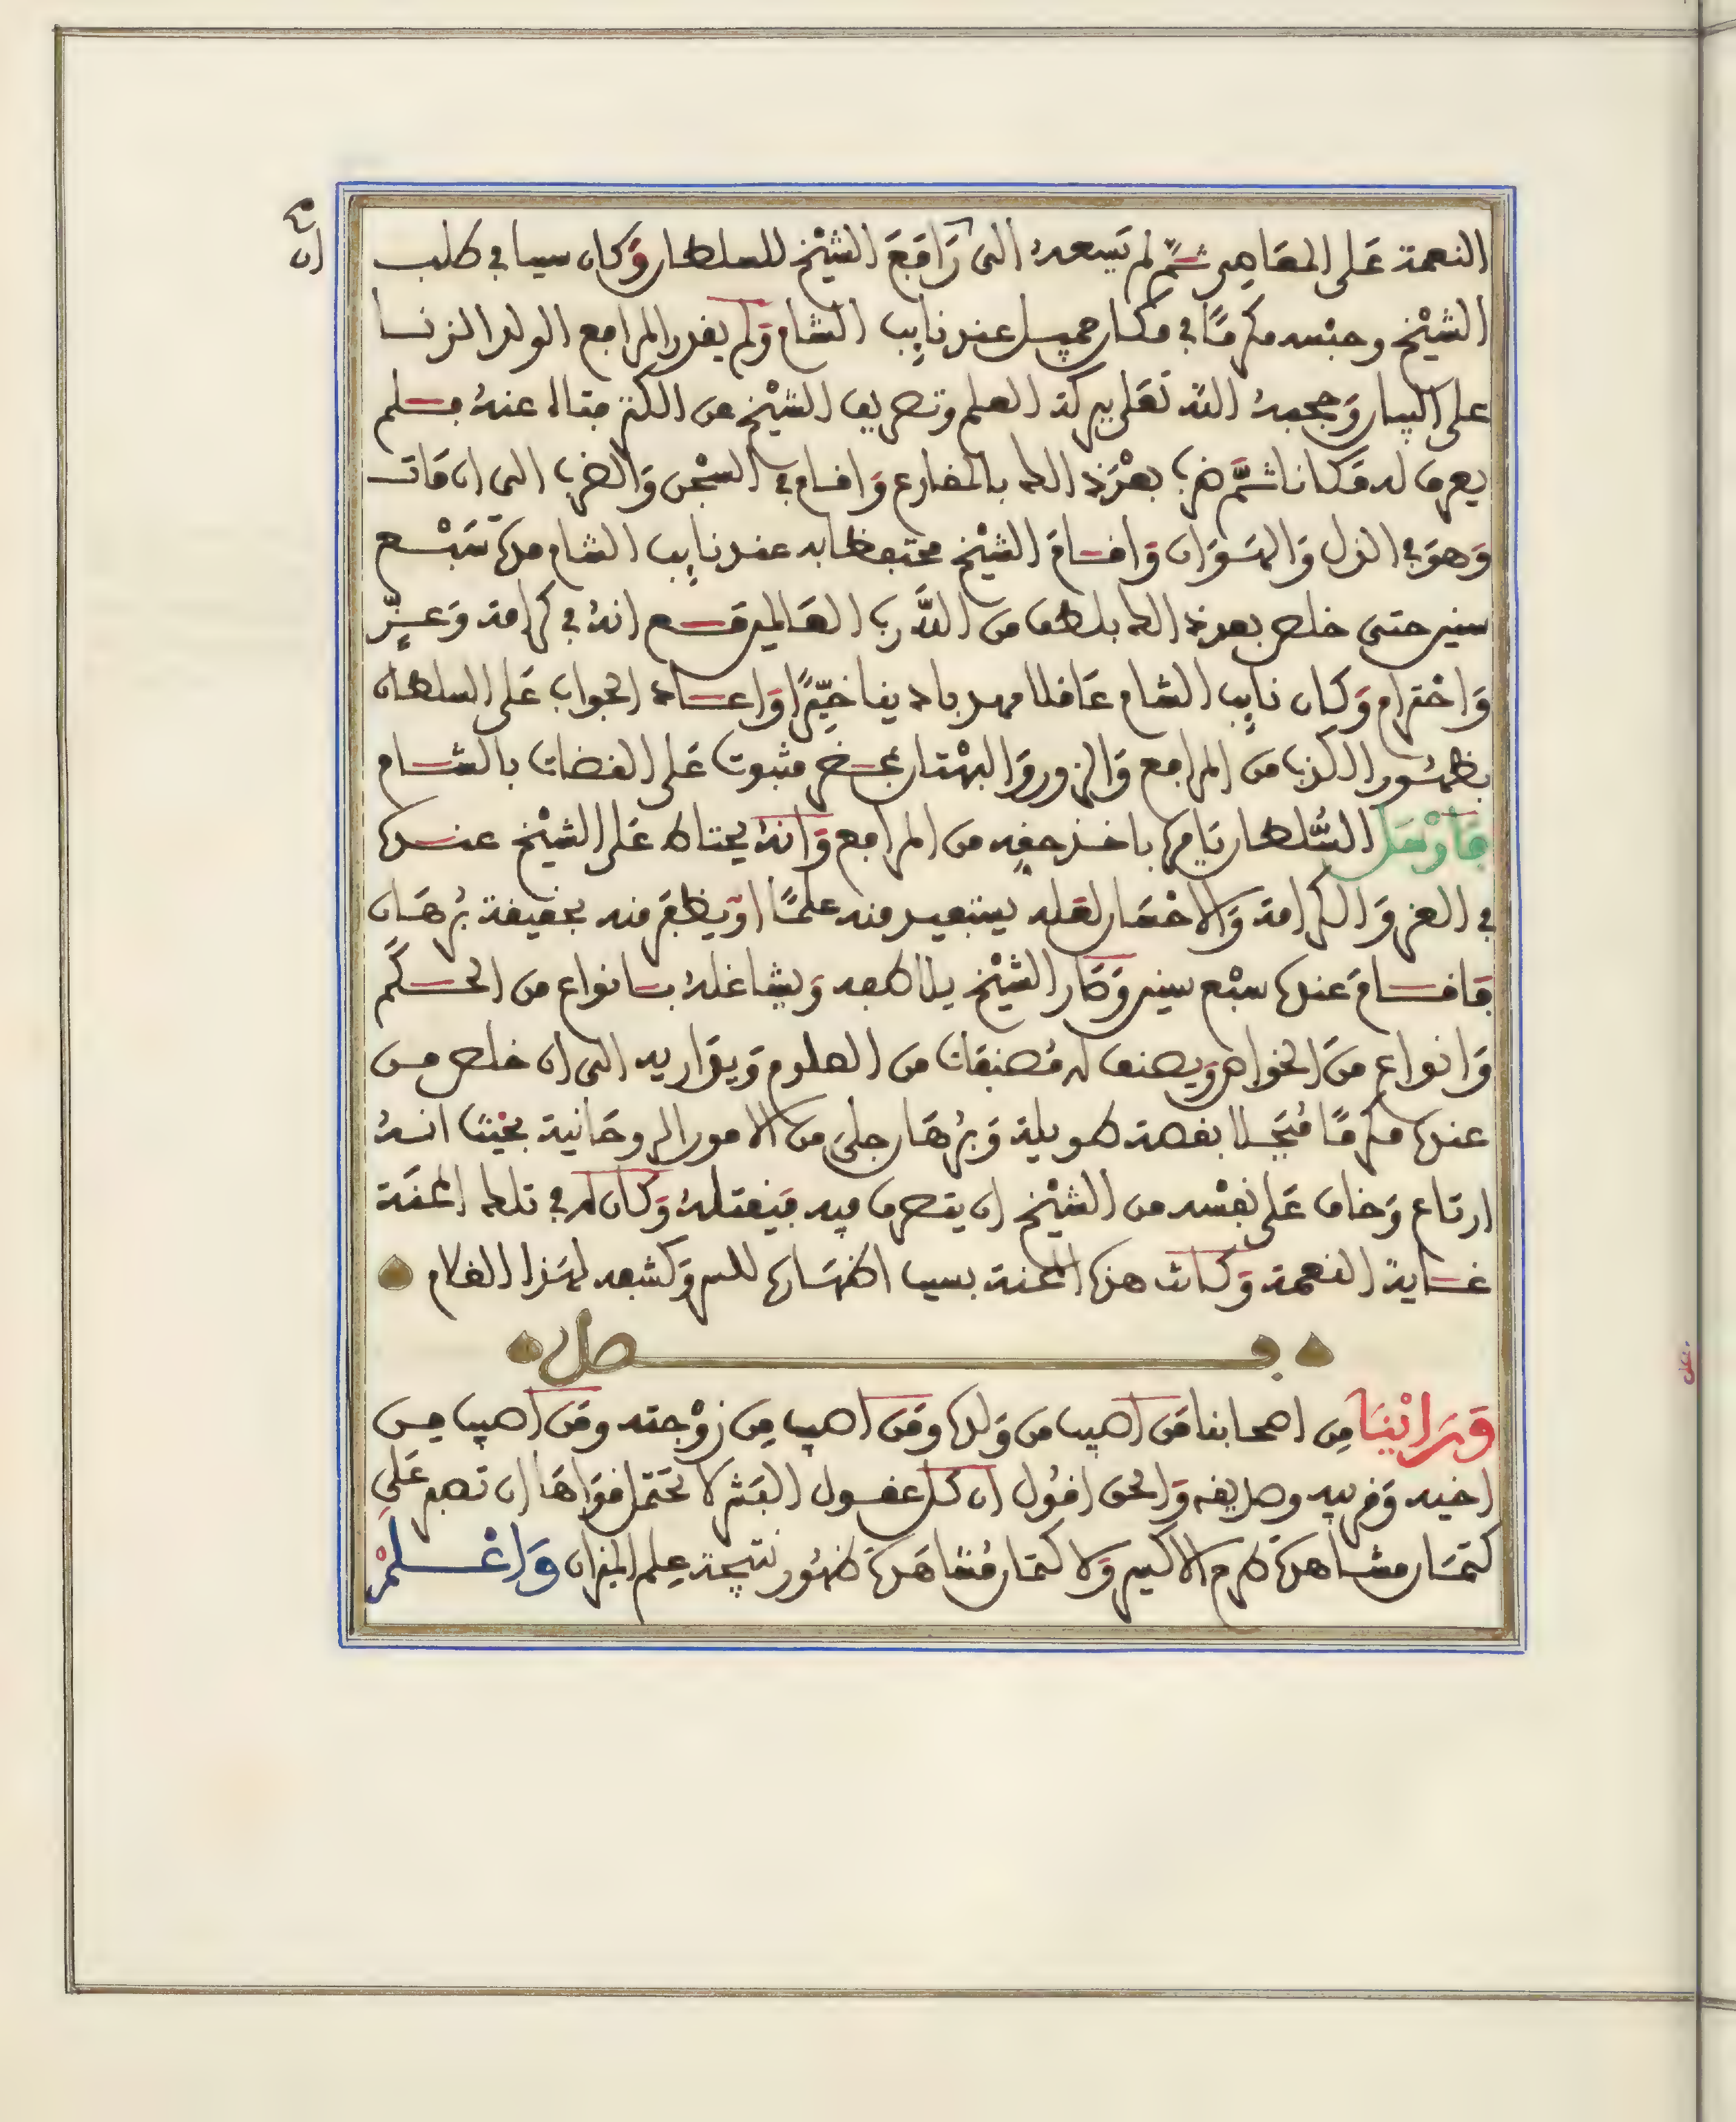 النعمة عَلى المعَاصِى ثمَّ لم يَسعهُ الى رَافَعَ الشيْخ للسلطان وَكان سببا في طلب
الشيْخ وحبْسه مكرمًا في مكان جميل عند نايب الشام وَلم يقدر المرافع الولد الزنا
على البيان وَحجبهُ الله تعَلى ببركة العلم وتصريف الشيْخ من الكنز فتاه عنهُ فلم
يعرف له مَكانا ثمَّ ضرب بعْدَ ذالك بالمقارع وَاقام في السجْن وَالضرب الى ان مَات
وَهوَ في الذل وَالهَوَان وَاقامَ الشيْخ محتفظا به عند نايب الشام مدة سَبْع
سنين حتى خلص بعد ذالك بلطف من اللَّه رب العَالمين مع انهُ في كرامة وَعزّ
وَاحْترام وَكان نايب الشام عَاقلا مهذبا دينا خيّرًا وَاعاد الجواب عَلى السلطان
بظهُور الكذب من المرافع وَالزور وَالبهْتان بمحضر مثبوت عَلى القضات بالشام
فَارْسَل السُّلطان يَامرُه باخذ حقه من المرافع وَانهُ يحتاط عَلى الشيْخ عندهُ
في العز وَالكرامة وَالاحْضار لعَله يستفيد منه علمًا اوْ يظفَر منه بحقيقة بُرهَان
فاقامَ عندهُ سبْع سنين وَكان الشيْخ يلاطفه وَيشاغلهُ بانواع من الحكَم
وَانواع منَ الخواص وَيصنف له مُصنفات من العلوم وَيوَاريه الى ان خلص من
عندهُ مكرمًا مُبَجلا بقصة طويلة وَبُرهَان جلىّ من الامور الروحَانية بحيْث انهُ
ارتاع وَخاف عَلى نفْسه من الشيْخ ان يتصرف فيه فيَقتلهُ وَكان له في تلك المحنَة
غاية النعمة وَكانت هذه المحنة بسبب اظهَاره للسر وَكشفه لهَذا الغلام
فصل
وَرَايْنَا مِن اصحابنا مَن اصيب من وَلده وَمَن اصيب مِن زوْجته ومَن اصيب من
اخيه وَقريبه وصديقه وَالحق اقوُل ان كل عقول البَشر لا تحتمل قوَاهَا ان تصبر عَلى
كتمَان مشاهدة طرح الاكسير وَلا كتمان مُشاهَدة ظهُور نتيجة علم الميزان وَاعْلمْ